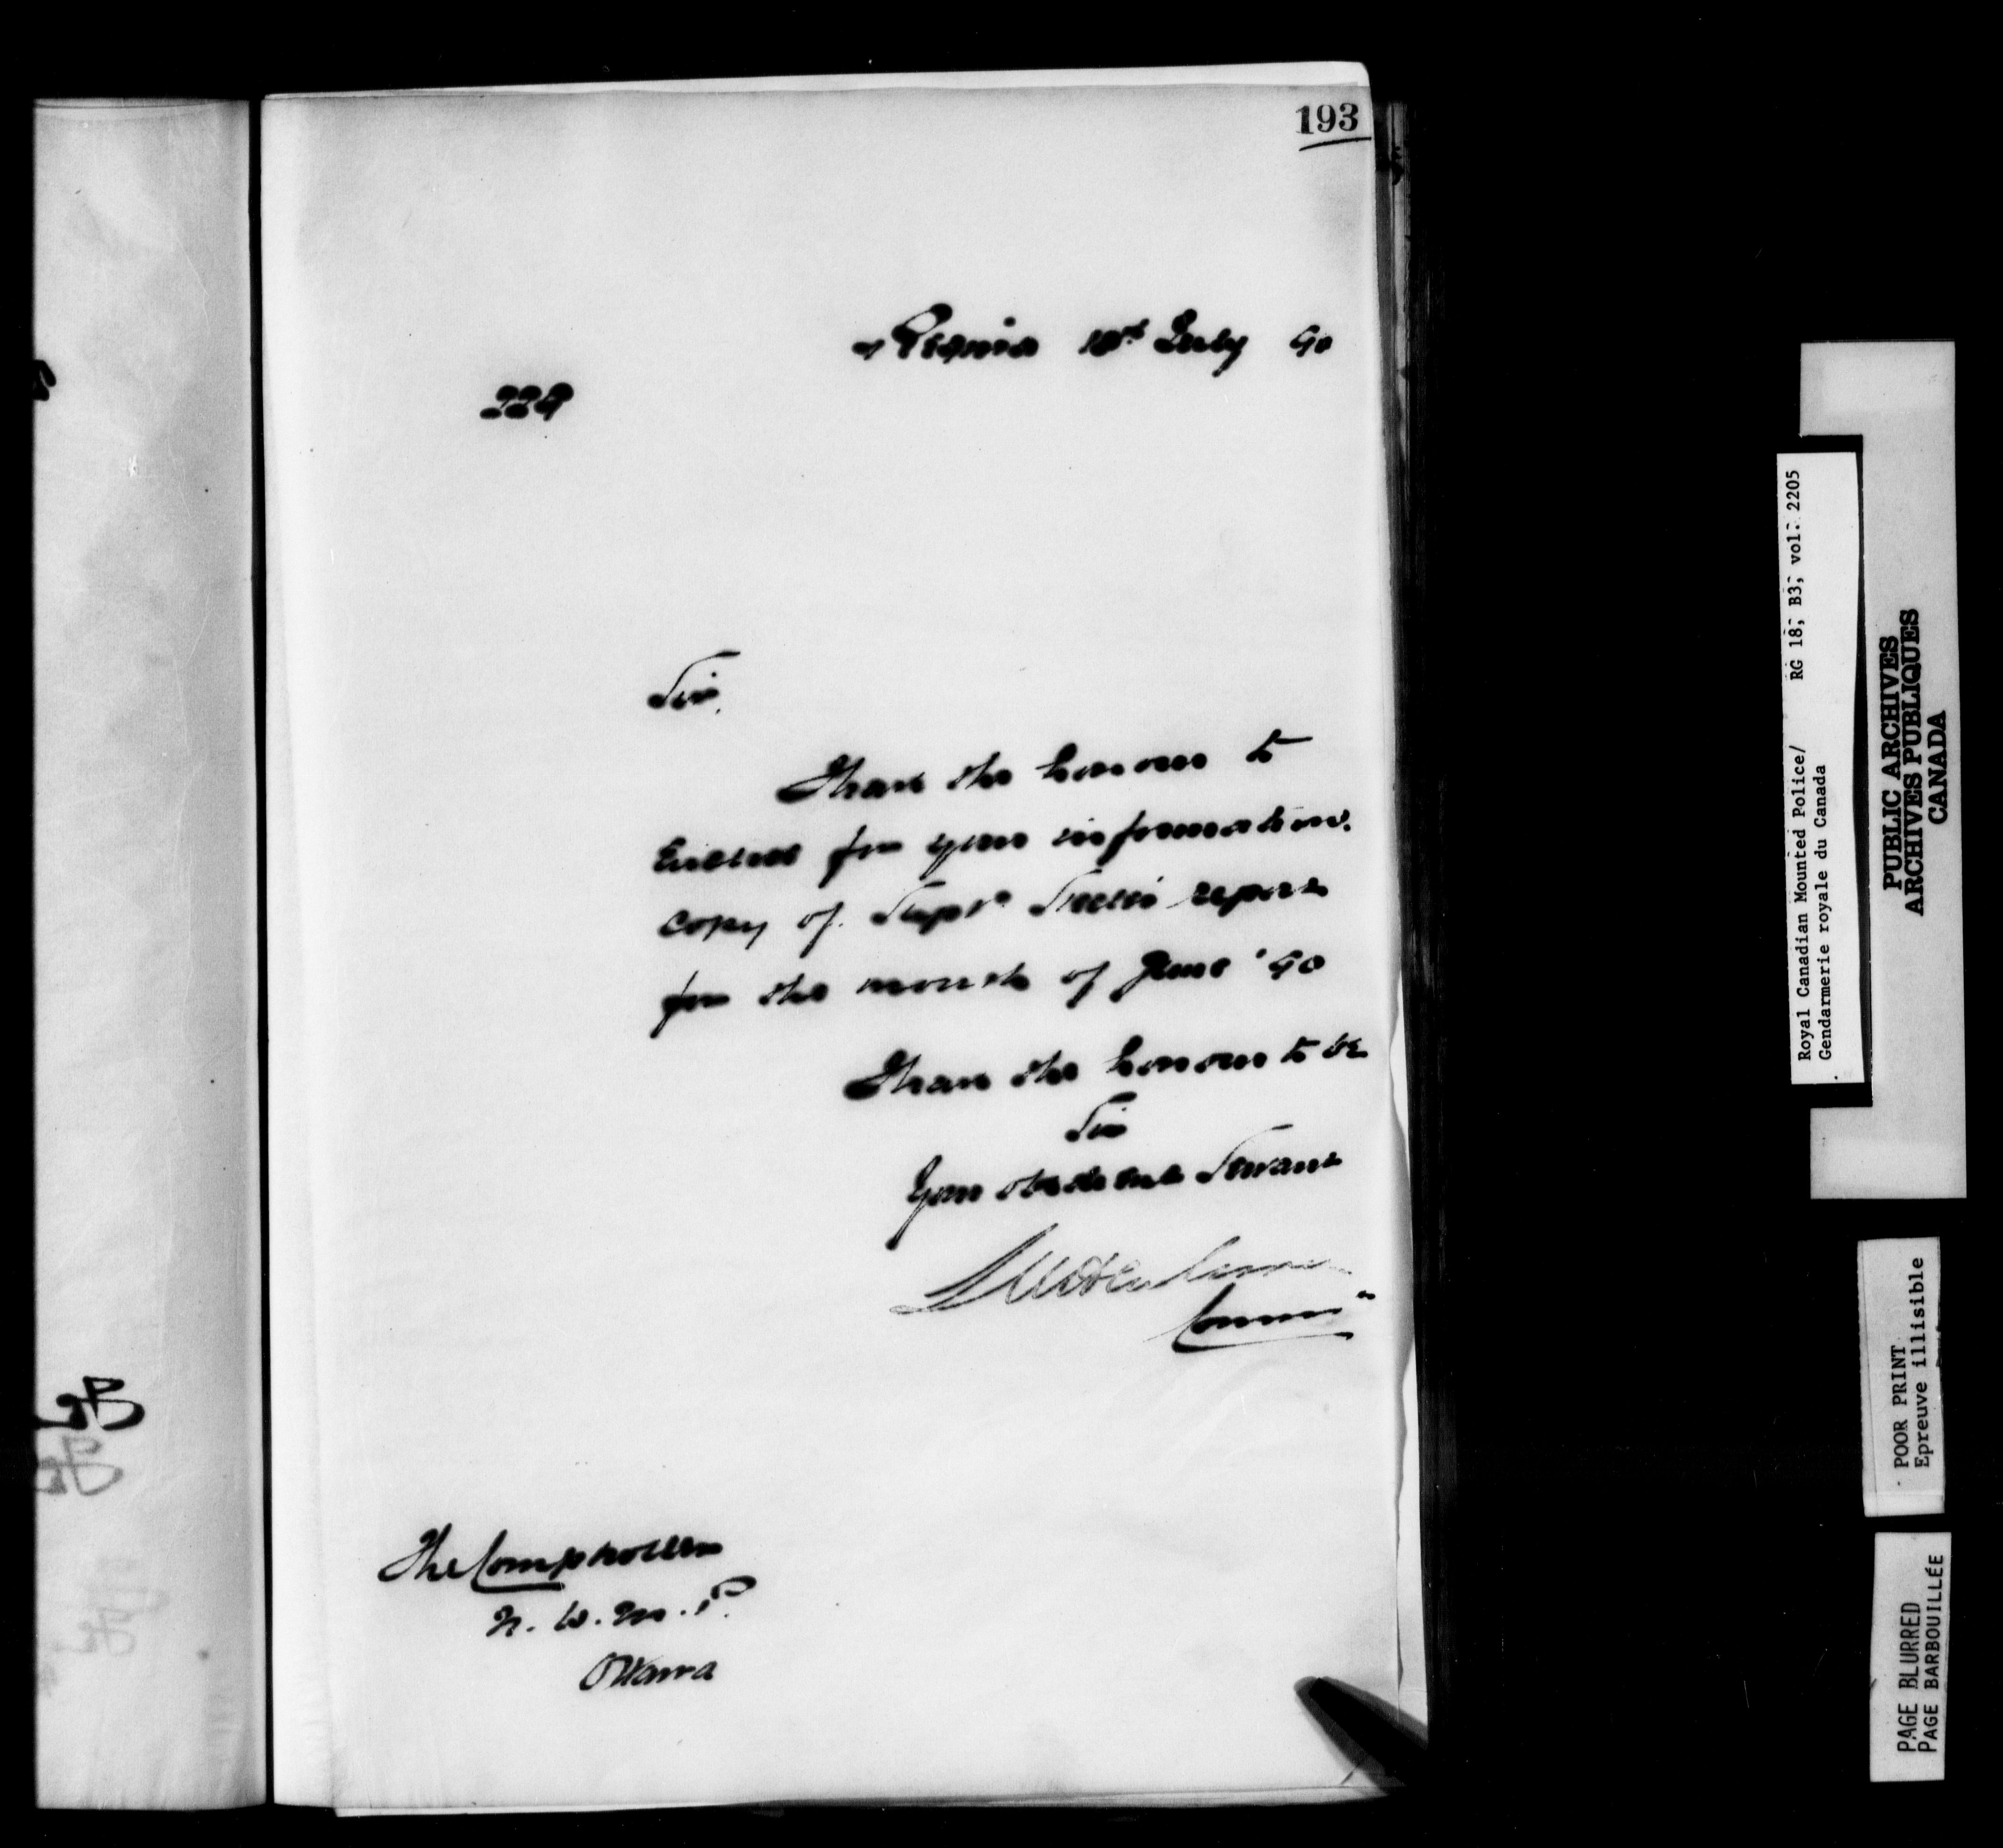 193
Regina 10th July 90
229
Sir,
I have the honour to
Enclose for your information.
copy of Supt Steele's report
for the month of June '90
I have the honour to be
Sir
Your obedient Servant
Comm
The Comptroller
N. W. M. P.
Ottawa
Royal Canadian Mounted Police/ RG 18, B3, vol. 2205
Gendarmerie royale du Canada
PUBLIC ARCHIVES
ARCHIVES PUBLIQUES
CANADA
POOR PRINT
Epreuve illisible
PAGE BLURRED
PAGE BARBOUILLÉE